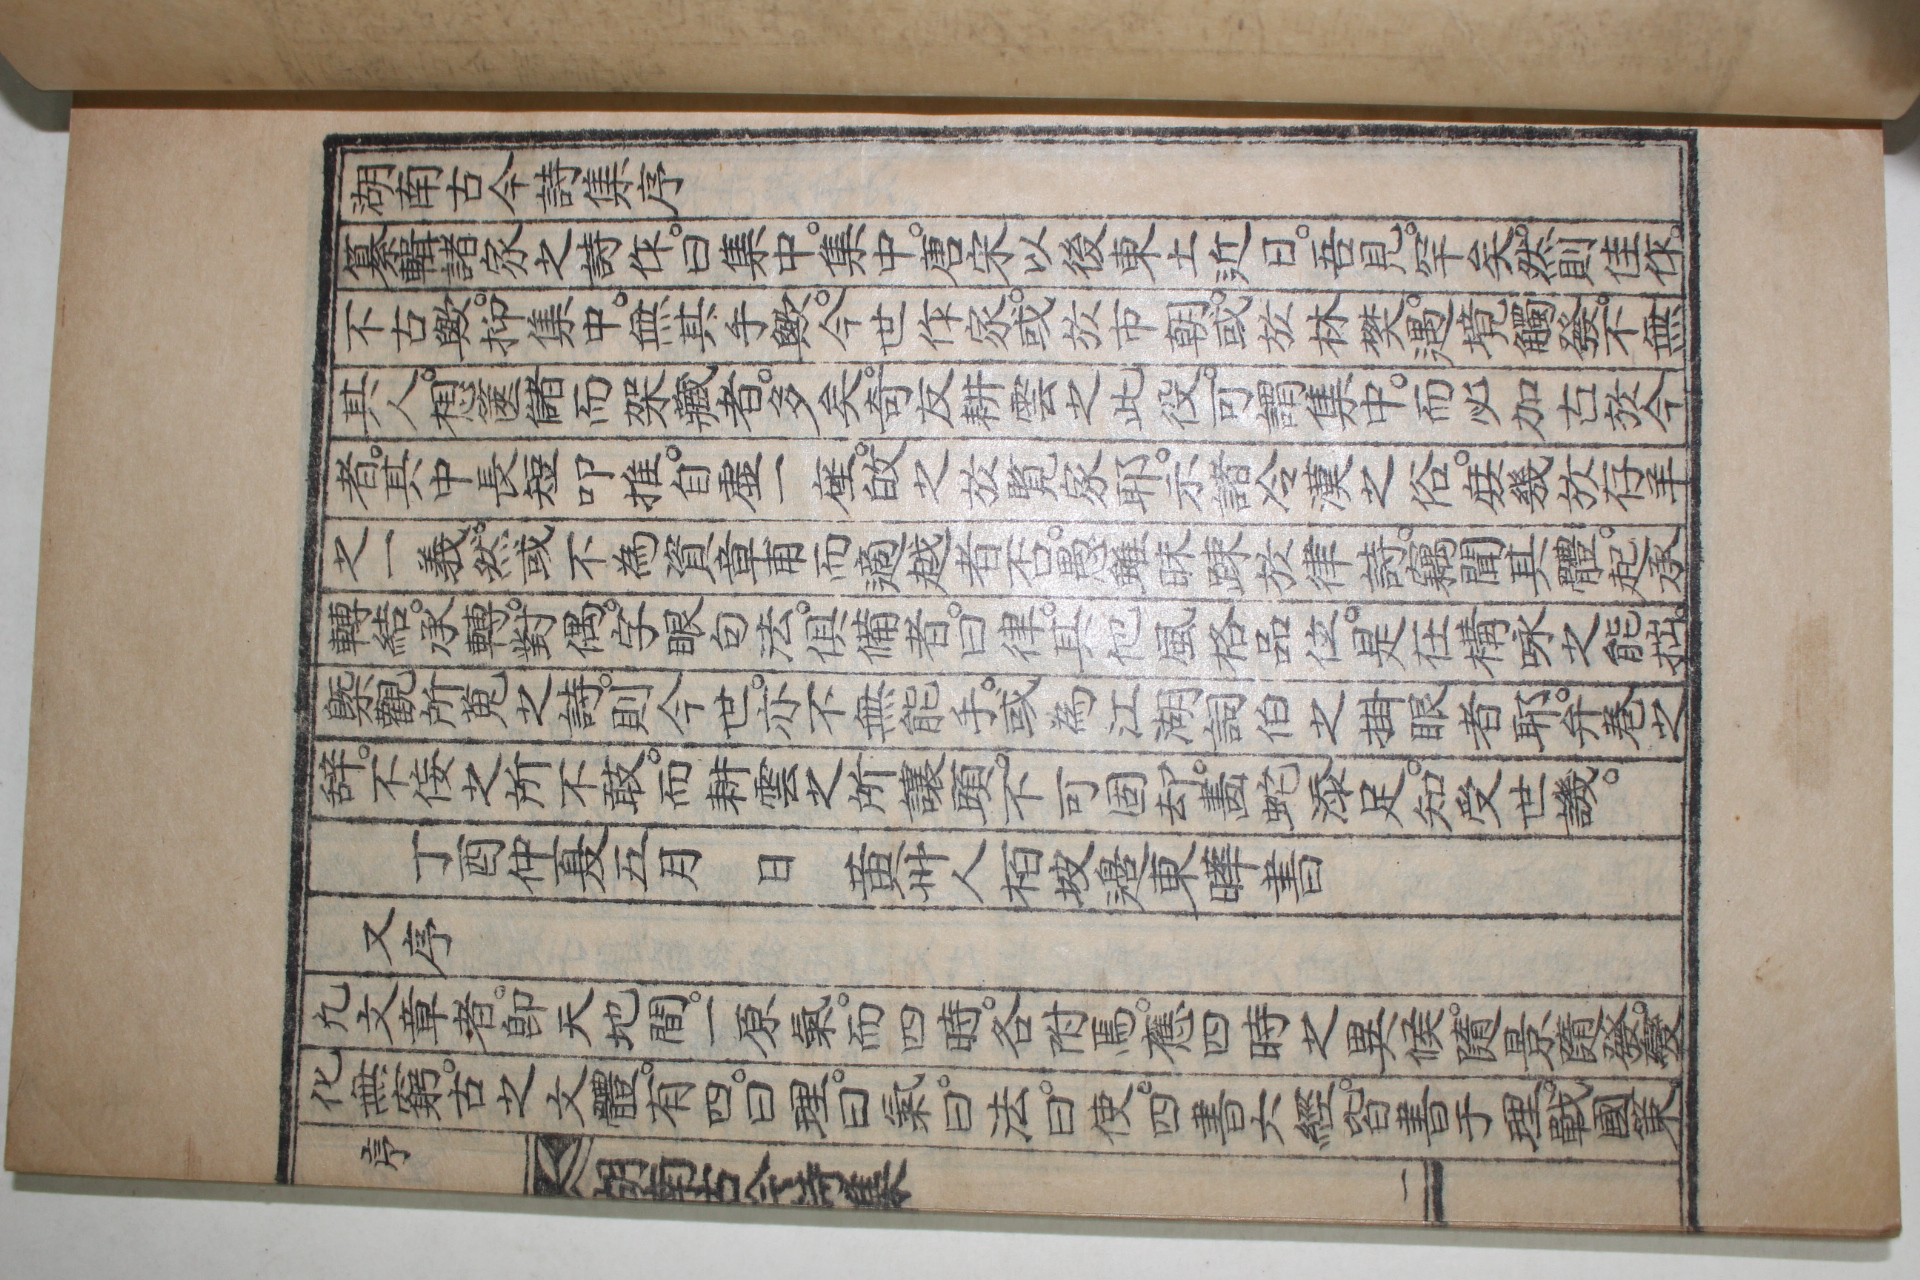 湖南古今詩集序
纂輯諸家之詩作。曰集中。集中。唐宋以後東土近日。吾見。罕矣。然則佳作。
不古歟。抑集中。無其手歟。今世作家。或於市朝。或於林樊。遇境觸發。不無
其人。想篋儲而架藏者。多矣。奇友耕雲之此役。可謂集中。而必加古於今
者。其中長短叩推。自虛一座。故之於覽家耶。示諸冷漢之俗。庶幾於存羊
之一義。然或不為資章甫而適越者否。愚雖昧踈於律詩。竊聞其體。起承
轉結。承轉。對偶。字眼句法。俱備者。曰律。其他風格品位。是在構咏之能拙。
槩觀所蒐之詩。則今世。亦不無能手。或為江湖詞伯之掛眼者耶。弁卷之
辞。不侫之所不敢。而耕雲之所讓頭。不可固却。畵蛇添足。知受世譏。
丁酉仲夏五月　日　黃州人栢坡邊東暲書
又序
凢文章者。卽天地間。一原氣。而四時。各附焉。應四時之異候。隨景隨發。變
化無窮。古之文體。有四。曰理。曰氣。曰法。曰使。四書六經。皆書于理。戰國策。
序
湖南古今詩集
二